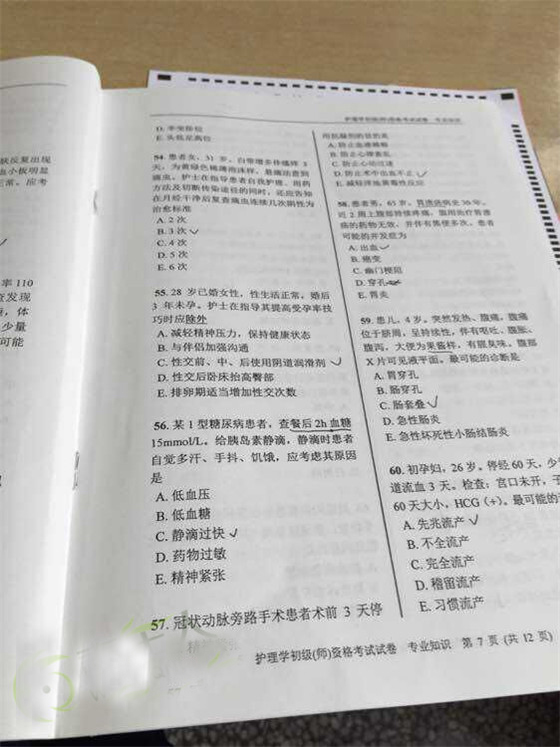 状反复出现
血小板明显
正常。应考
率 110
查发现
，体
少量
可能
护理学初级(师)资格考试试卷 专业知识
D. 半坐卧位
E. 头低足高位
54. 患者女，31 岁。白带增多伴瘙痒 3
天，为黄绿色稀薄泡沫样，悬滴法查到
滴虫。护士在指导患者自我护理、用药
方法及切断传染途径的同时，还应告知
在月经干净后复查滴虫连续几次阴性为
治愈标准
A. 2 次
B. 3 次
C. 4 次
D. 5 次
E. 6 次
55. 28 岁已婚女性，性生活正常，婚后
3 年未孕。护士在指导其提高受孕率技
巧时应除外
A. 减轻精神压力，保持健康状态
B. 与伴侣加强沟通
C. 性交前、中、后使用阴道润滑剂
D. 性交后卧床抬高臀部
E. 排卵期适当增加性交次数
56. 某 1 型糖尿病患者，查餐后 2h 血糖
15mmol/L。给胰岛素静滴，静滴时患者
自觉多汗、手抖、饥饿，应考虑其原因
是
A. 低血压
B. 低血糖
C. 静滴过快
D. 药物过敏
E. 精神紧张
57. 冠状动脉旁路手术患者术前 3 天停
用抗凝剂的目的是
A. 防止血液稀释
B. 防止心律紊乱
C. 防止心动过速
D. 防止术中出血不止
E. 减轻洋地黄毒性反应
58. 患者男，65 岁。胃溃疡病史 30 年。
近 2 周上腹部持续疼痛，服用治疗胃溃
疡的药物无效，并伴有黑便多次。患者
可能的并发症为
A. 出血
B. 癌变
C. 幽门梗阻
D. 穿孔
E. 胃炎
59. 患儿，4 岁。突然发热、腹痛，腹痛
位于脐周，呈持续性，伴有呕吐、腹胀、
腹泻，大便为果酱样，有腥臭味，腹部
X 片可见液平面。最可能的诊断是
A. 胃穿孔
B. 肠穿孔
C. 肠套叠
D. 急性肠炎
E. 急性坏死性小肠结肠炎
60. 初孕妇，26 岁。停经 60 天，少
道流血 3 天。检查：宫口未开，子
60 天大小，HCG（+）。最可能的
A. 先兆流产
B. 不全流产
C. 完全流产
D. 稽留流产
E. 习惯流产
护理学初级(师)资格考试试卷 专业知识 第 7 页 (共 12 页)